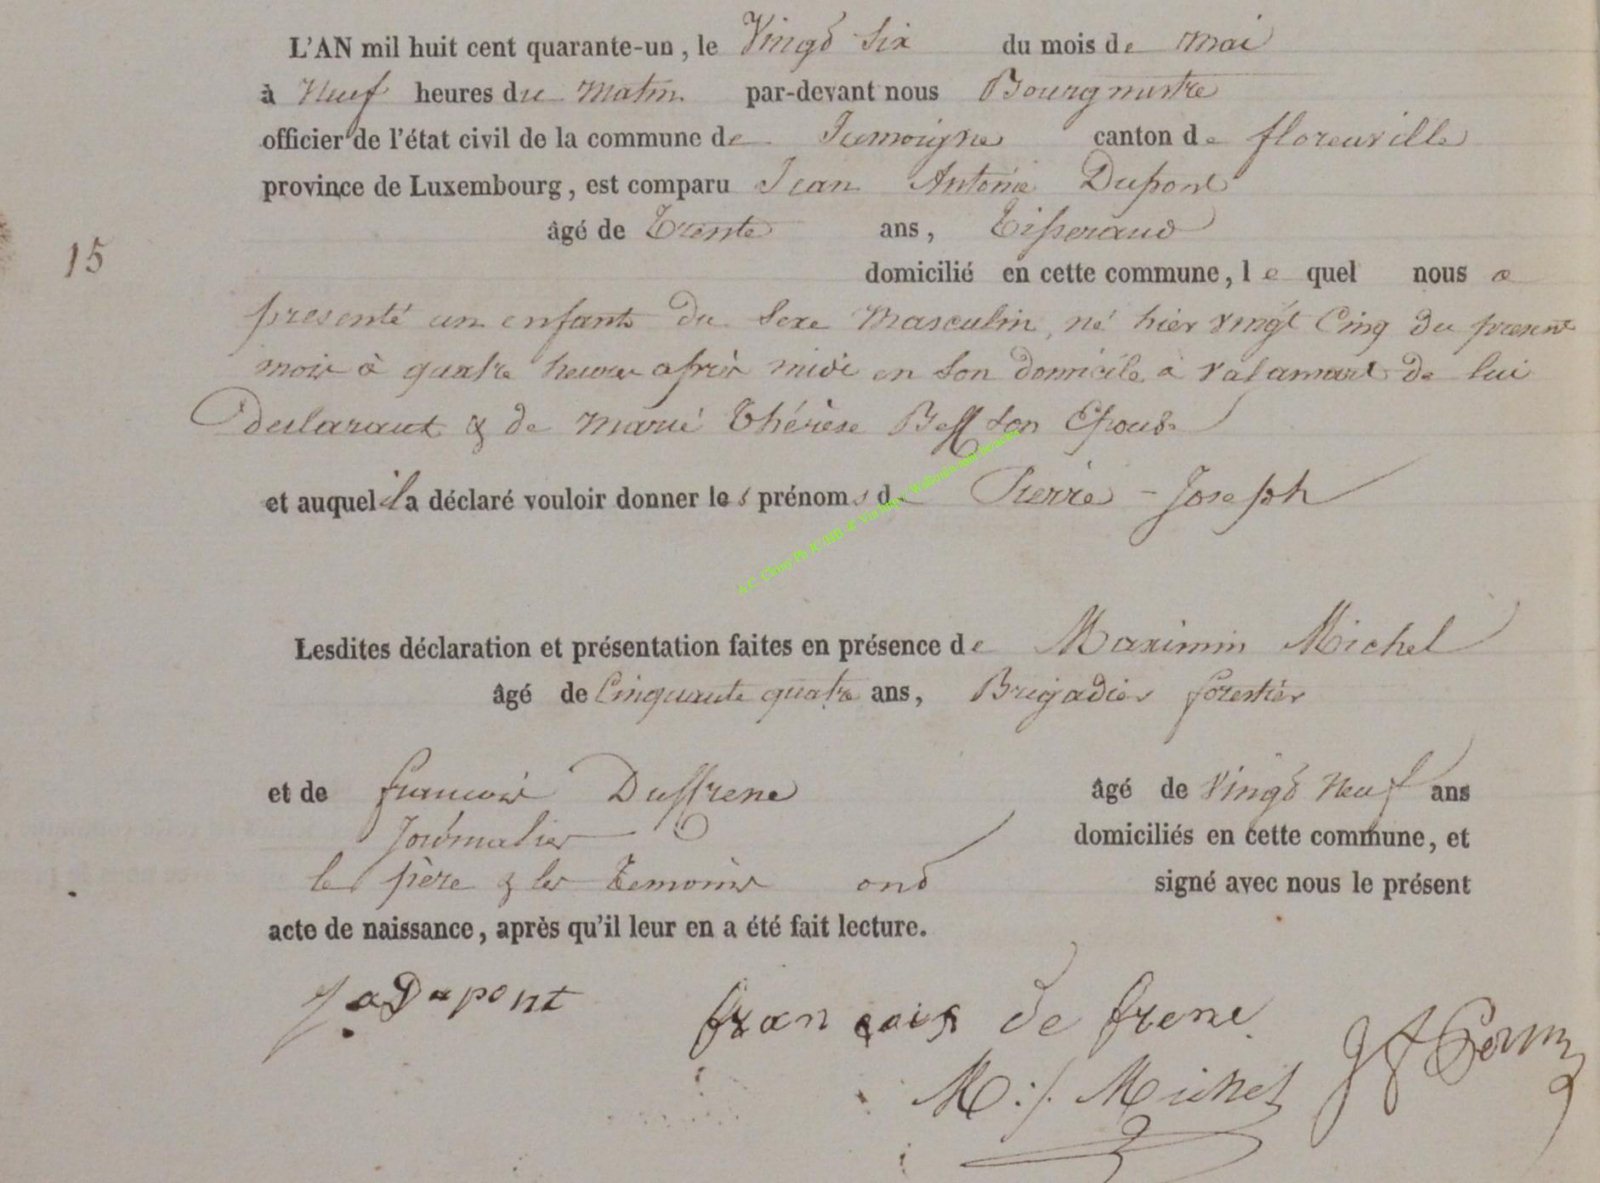 L'AN mil huit cent quarante-un, le Vingt Six du mois de Mai
à Neuf heures du Matin par-devant nous Bourgmestre
officier de l'état civil de la commune de Jamoigne canton de florenville
province de Luxembourg, est comparu Jean Antoine Dupont
âgé de Trente ans, Tisserand
15
domicilié en cette commune, le quel nous a
presenté un enfant du Sexe Masculin, né hier vingt Cinq du present
mois à quatre heures après midi en Son domicile à Valansart de lui
declarant & de Marie Thérèse Son Epouse
et auquel il a déclaré vouloir donner les prénoms de Pierre - Joseph
Lesdites déclaration et présentation faites en présence de Maximin Michel
âgé de Cinquante quatre ans, Brigadier forestier
et de francois Duffrene âgé de Vingt Neuf ans
Journalier domiciliés en cette commune, et
le père & les Temoins ont signé avec nous le présent
acte de naissance, après qu'il leur en a été fait lecture.
J a Dupont françois de frene
M:/. Michel